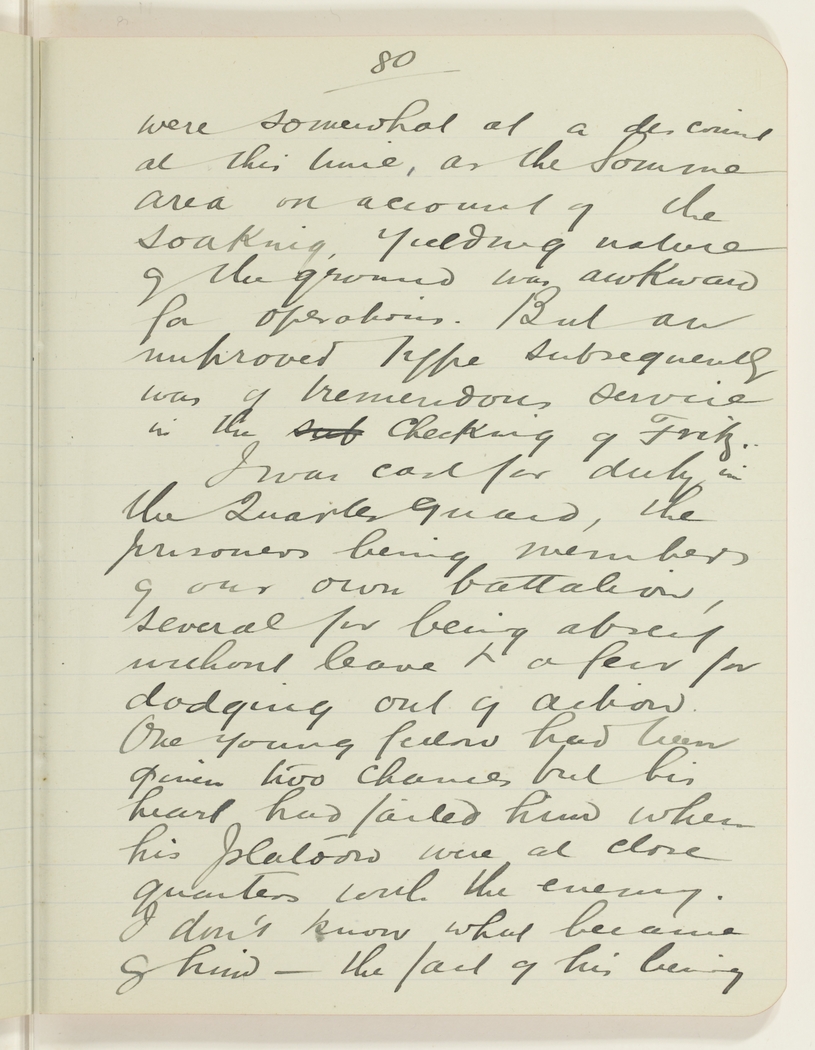 80
were somewhat at a discount
at this time, as the Somme
area on account of the
soaking, yielding nature
of the ground was awkward
for operations. But an
improved type subsequently
was of tremendous service
in the sub checking of Fritz.
I was cast for duty in
the Quarter Guard, the
prisoners being members
of our own battalion,
several for being absent
without leave + a few for
dodging out of action.
One young fellow had been
given two chances but his
heart had failed him when
his platoon were at close
quarters with the enemy.
I don't know what became
of him — the fact of his being